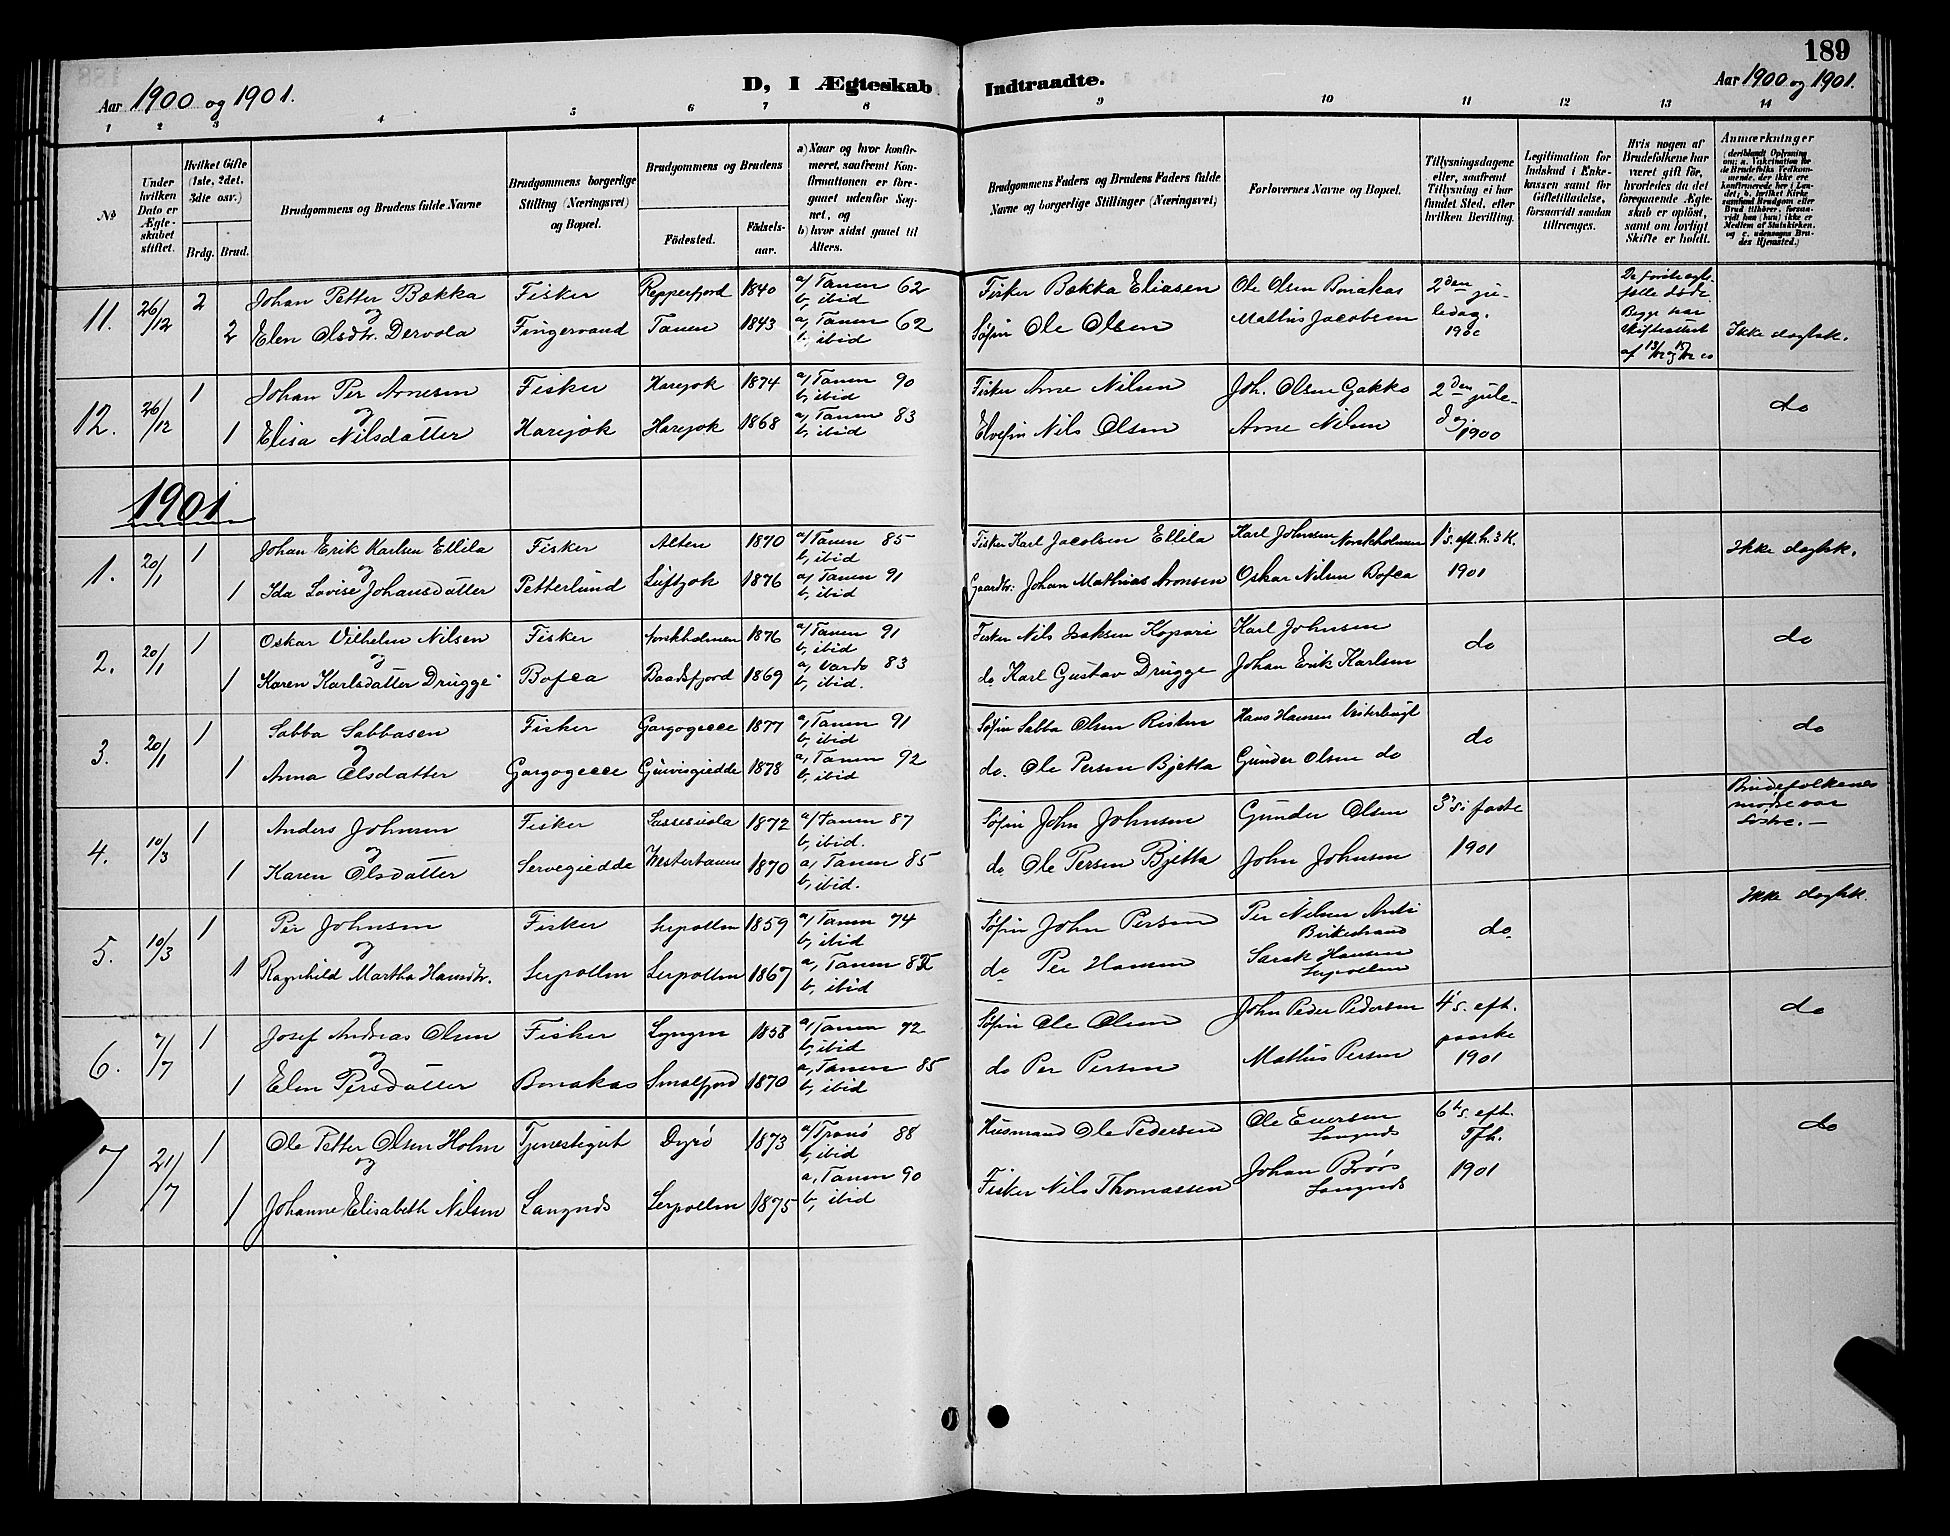 189
Aar 1900 og 1901.
D, I Ægteskab Indtraadte.
Aar 1900 og 1901.
1 2 3 4 5 6 7 8 9 10 11 12 13 14
№
Under hvilken Dato er Ægteskabet stiftet.
Hvilket Gifte (1ste, 2det, 3die osv.)
Brdg. Brud.
Brudgommens og Brudens fulde Navne
Brudgommens borgerlige Stilling (Næringsvei) og Bopæl.
Brudgommens og Brudens
Födested.
Födselsaar.
a) Naar og hvor konfirmeret, saafremt Konfirmationen er foregaaet udenfor Sognet, og
b) hvor sidst gaaet til Alters.
Brudgommens Faders og Brudens Faders fulde Navne og borgerlige Stillinger (Næringsvei)
Forlovernes Navne og Bopæl.
Tillysningsdagene eller, saafremt Tillysning ei har fundet Sted, efter hvilken Bevilling.
Legitimation for Indskud i Enkekassen samt for Giftetilladelse, forsaavidt saadan tiltrænges.
Hvis nogen af Brudefolkene har været gift för, hvorledes da det foregaaende Ægteskab er oplöst, samt om lovligt Skifte er holdt.
Anmærkninger
11. 26/12 2 Johan Petter Bækka Fisker Repperfjord 1840 a/ Tanen 62 b, ibid Fisker Bækka Eliasen Ole Olsen Bonakas 2den ju-
og
2 Elen Olsdtr. Dervola Fingervand Tanen 1843 a, Tanen 62 b, ibid Søfin Ole Olsen Mathis Jacobsen ledag. 1900 Ikke døgtsk.
12. 26/12 1 Johan Per Arnesen Fisker Harejok 1874 a/ Tanen 90 b, ibid Fisker Arne Nilsen Joh. Olsen Gakko 2den jule-
og
1 Elisa Nilsdatter Harejok Harejok 1868 a, Tanen 83 b, ibid Elvefin Nils Olsen Arne Nilsen dag. 1900 do
1901
1. 20/1 1 Johan Erik Karlsen Ellila Fisker Alten 1870 a/ Tanen 85 b, ibid Fisker Karl Jacobsen Ellila Karl Johnsen Norskholmen 1's. eft. h. 3 K.
og
1 Ida Lovise Johansdatter Petterlund Luftjok 1876 a, Tanen 91 b, ibid Gaardbr. Johan Mathias Aronsen Oskar Nilsen Bofca 1901
2. 20/1 1 Oskar Vilhelm Nilsen Fisker Norskholmen 1876 a/ Tanen 91 b, ibid Fisker Nils Isaksen Kopari Karl Johnsen do do
og
1 Karen Karlsdatter Drugge Bofca Baadsfjord 1869 a, Vardø 83 b, ibid. do Karl Gustav Drugge Johan Erik Karlsen
3. 20/1 1 Sabba Sabbasen Fisker Gargogecce 1877 a, Tanen 91 b, ibid Søfin Sabba Olsen Risten Hans Hansen do do
og
1 Anna Olsdatter Gargogecce 1878 a, Tanen 92 b, ibid do. Ole Persen Bjetta Gunder Olsen do
4. 10/3 1 Anders Johnsen Fisker 1872 a/ Tanen 87 b, ibid. Søfin John Johnsen Gunder Olsen 3's. i faste Brudefolkenes mødre var Søstre.—
og
1 Karen Olsdatter Servegiedde Vestertanen 1870 a, Tanen 85 b, ibid. do Ole Persen Bjetta John Johnsen 1901
5. 10/3 1 Per Johnsen Fisker Leirpollen 1859 a/ Tanen 74 b, ibid Søfin John Persen Per Nilsen Anti Birkestrand do
og
1 Ragnhild Martha Hansdtr. Leirpollen Leirpollen 1867 a, Tanen 82 b, ibid do Per Hansen Sarak Hansen Leirpollen
6. 7/7 1 Josef Andreas Olsen Fisker Lyngen 1858 a/ Tanen 72 b, ibid Søfin Ole Olsen John Peder Pedersen 4's. eft. paaske do
og
1 Elen Persdatter Bonakas Smalfjord 1870 a, Tanen 85 b, ibid do Per Persen Mathis Persen 1901
7 21/7 1 Ole Petter Olsen Holm Tjenestegut Dyrö 1873 a/ Tranö 88 b, ibid Husmand Ole Pedersen Ole Eversen Langnæs 6's. eft. Tfh. do
og
1 Johanne Elisabeth Nilsen Langnæs Leirpollen 1875 a, Tanen 90 b, ibid Fisker Nils Thomassen Johan Brørs Langnæs 1901